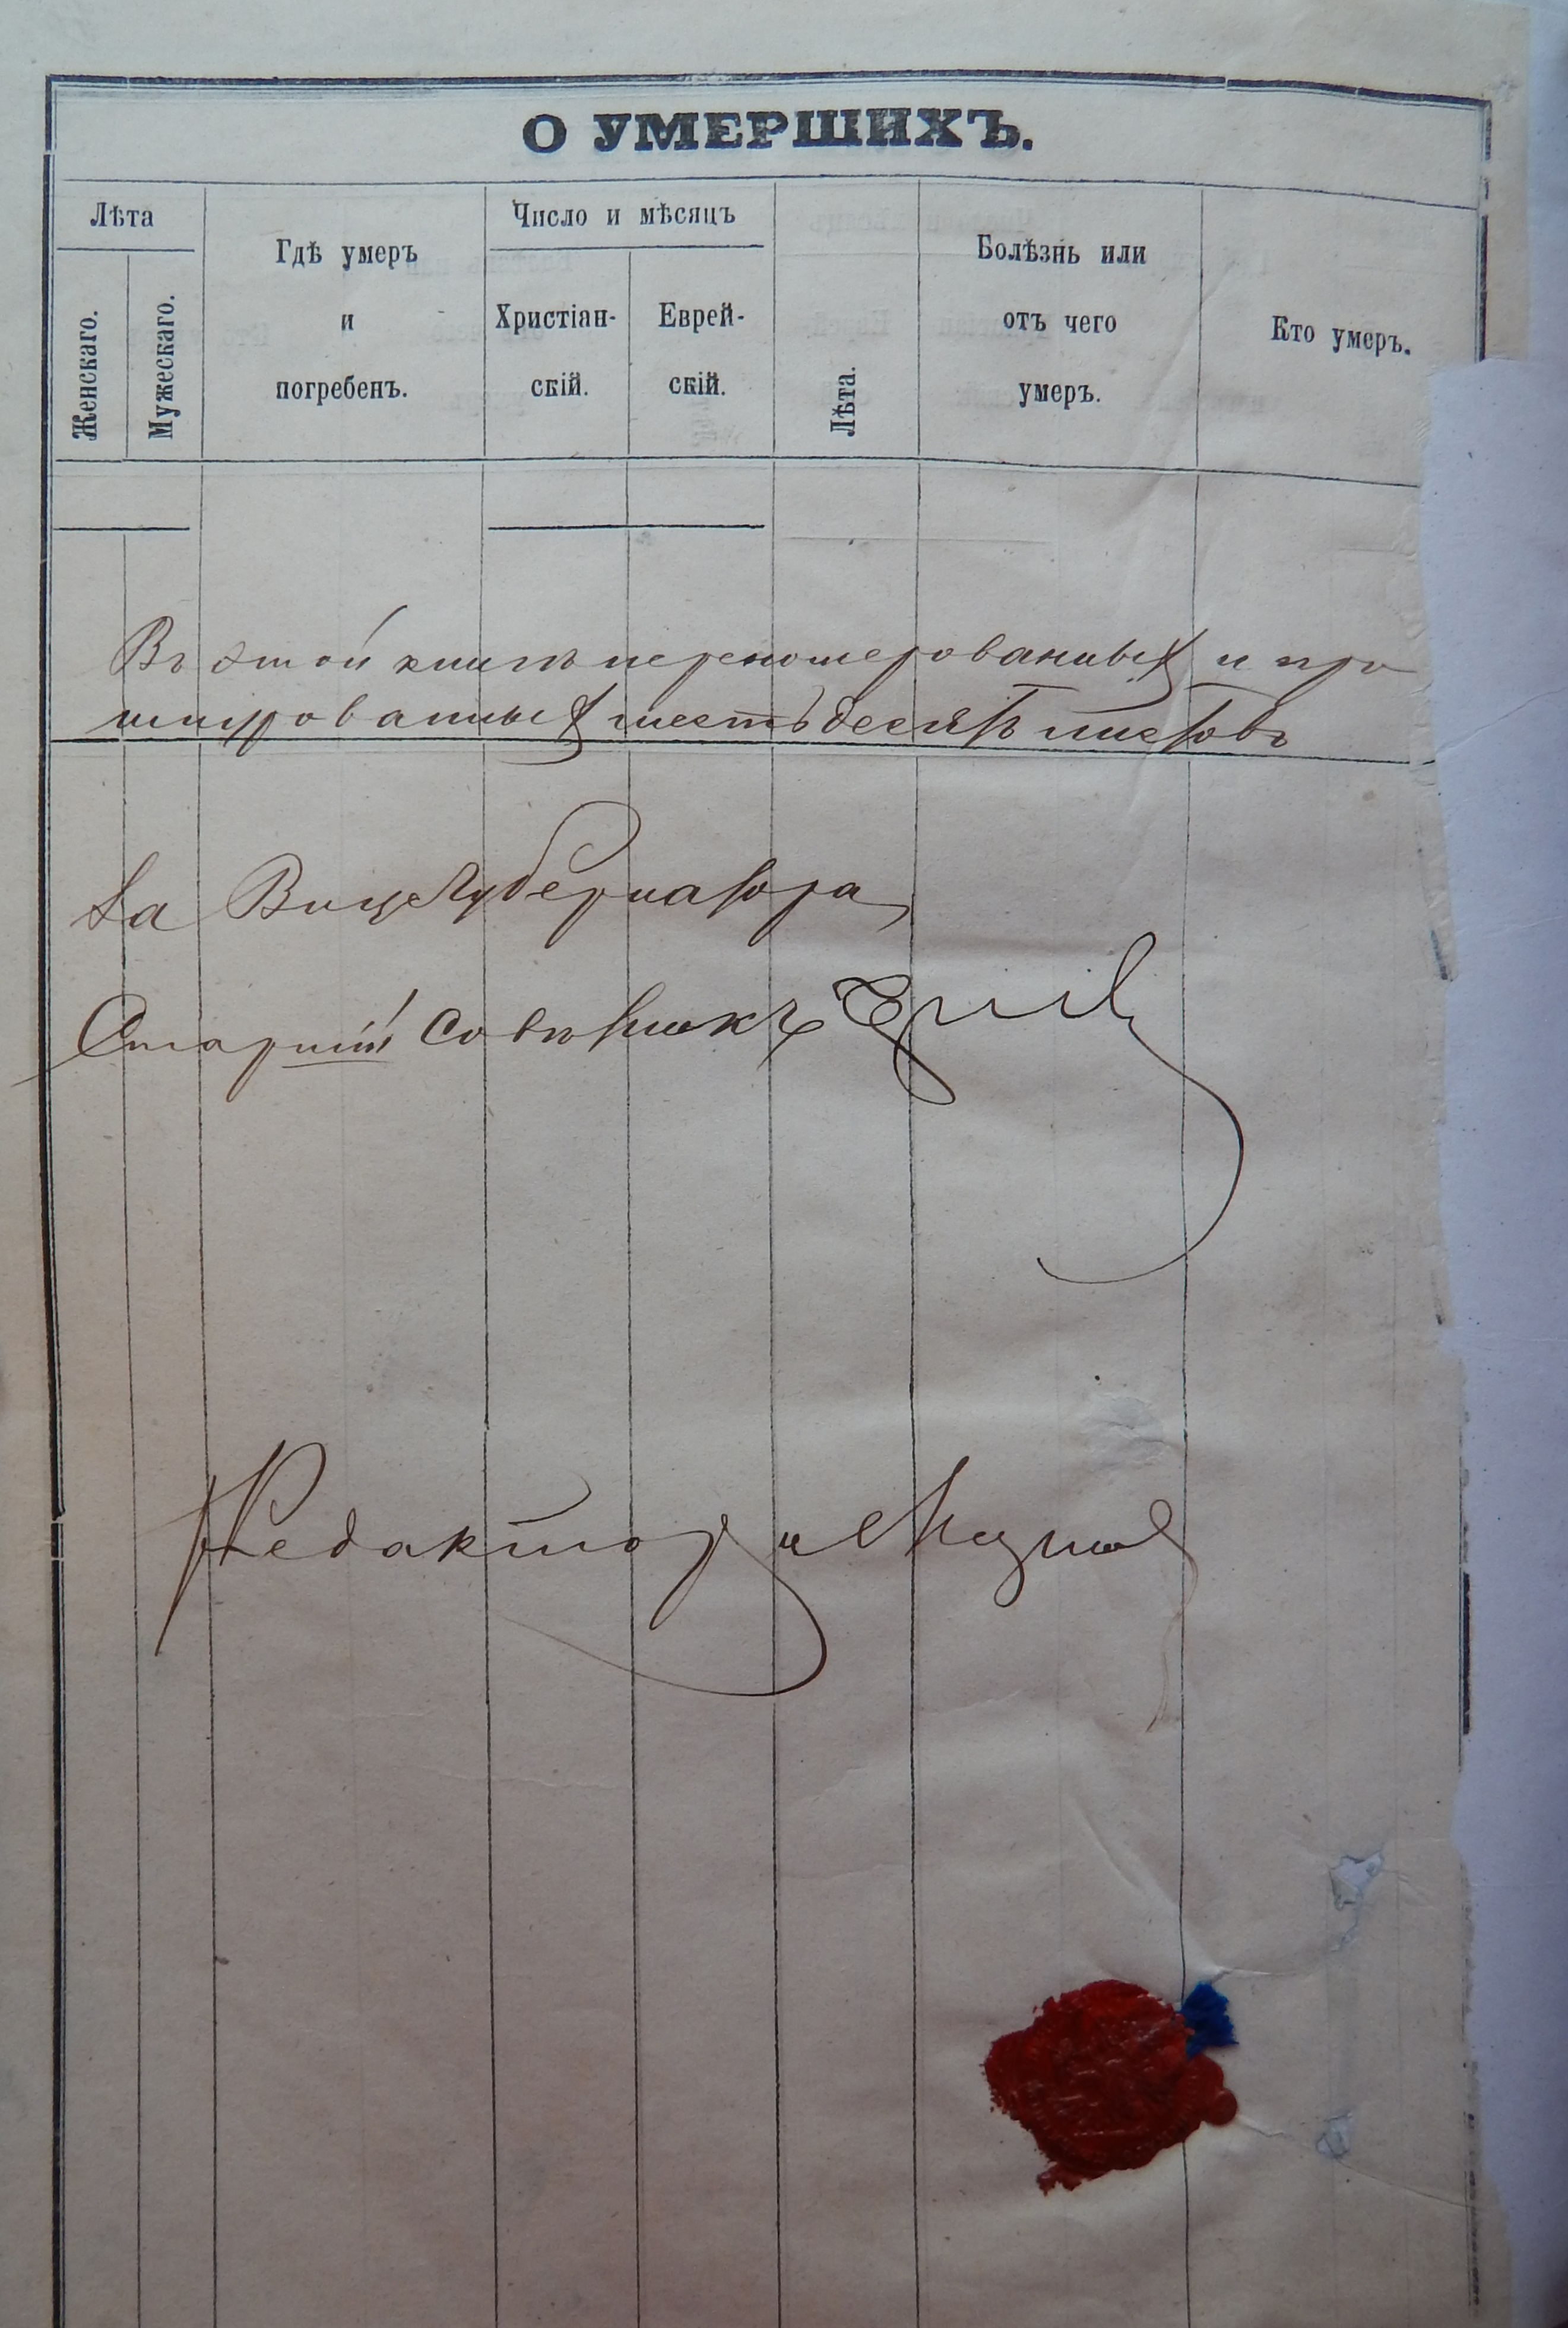 О УМЕРШИХЪ.
Лѣта
Женскаго.
Мужескаго.
Гдѣ умеръ
и
погребенъ.
Число и мѣсяцъ
Христіан-
скій.
Еврей-
скій.
Лѣта.
Болѣзнь или
отъ чего
умеръ.
Кто умеръ.
Въ этой книгѣ перенумерованныхъ и про
шнурованныхъ шестьдесятъ листовъ
За Вице Губернатора,
Старшій Совѣтникъ
Редакторъ